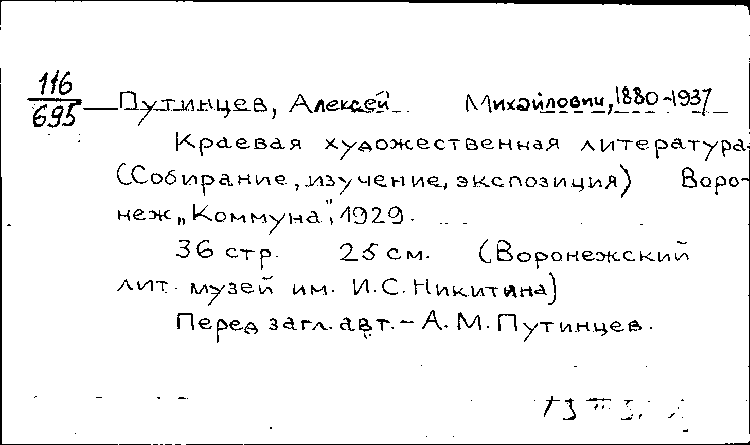 116
695
Путинцев, Алексей Михайлович, 1880-1937
Краевая художественная литература.
(Собирание, изучение, экспозиция) Воро-
неж, „Коммуна", 1929.
36 стр. 25 см. (Воронежский
лит. музей им. И.С. Никитина)
Перед загл. авт. - А.М. Путинцев.